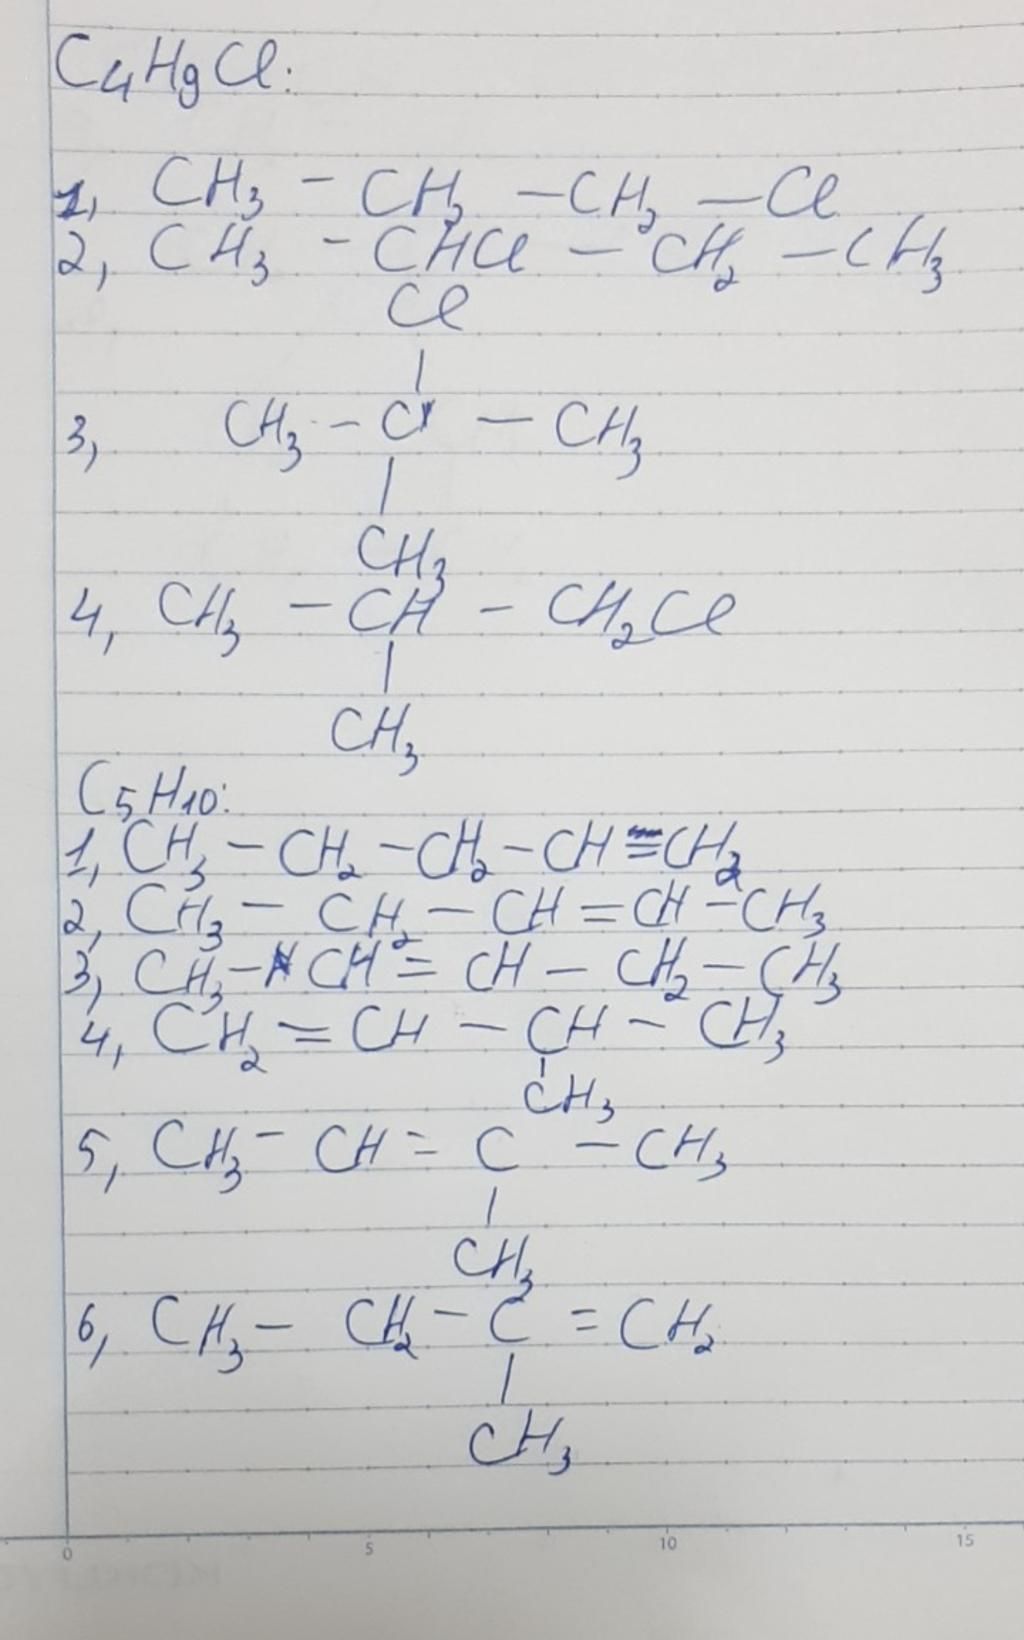 C₄H₉Cl:
1, CH₃ - CH₂ - CH₂ - Cl
2, CH₃ - CHCl - CH₂ - CH₃
Cl
|
3, CH₃ - C - CH₃
|
CH₃
4, CH₃ - CH - CH₂Cl
|
CH₃
C₅H₁₀:
1, CH₃ - CH₂ - CH₂ - CH = CH₂
2, CH₃ - CH₂ - CH = CH - CH₃
3, CH₃ - CH = CH - CH₂ - CH₃
4, CH₂ = CH - CH - CH₃
|
CH₃
5, CH₃ - CH = C - CH₃
|
CH₃
6, CH₃ - CH₂ - C = CH₂
|
CH₃
0 5 10 15